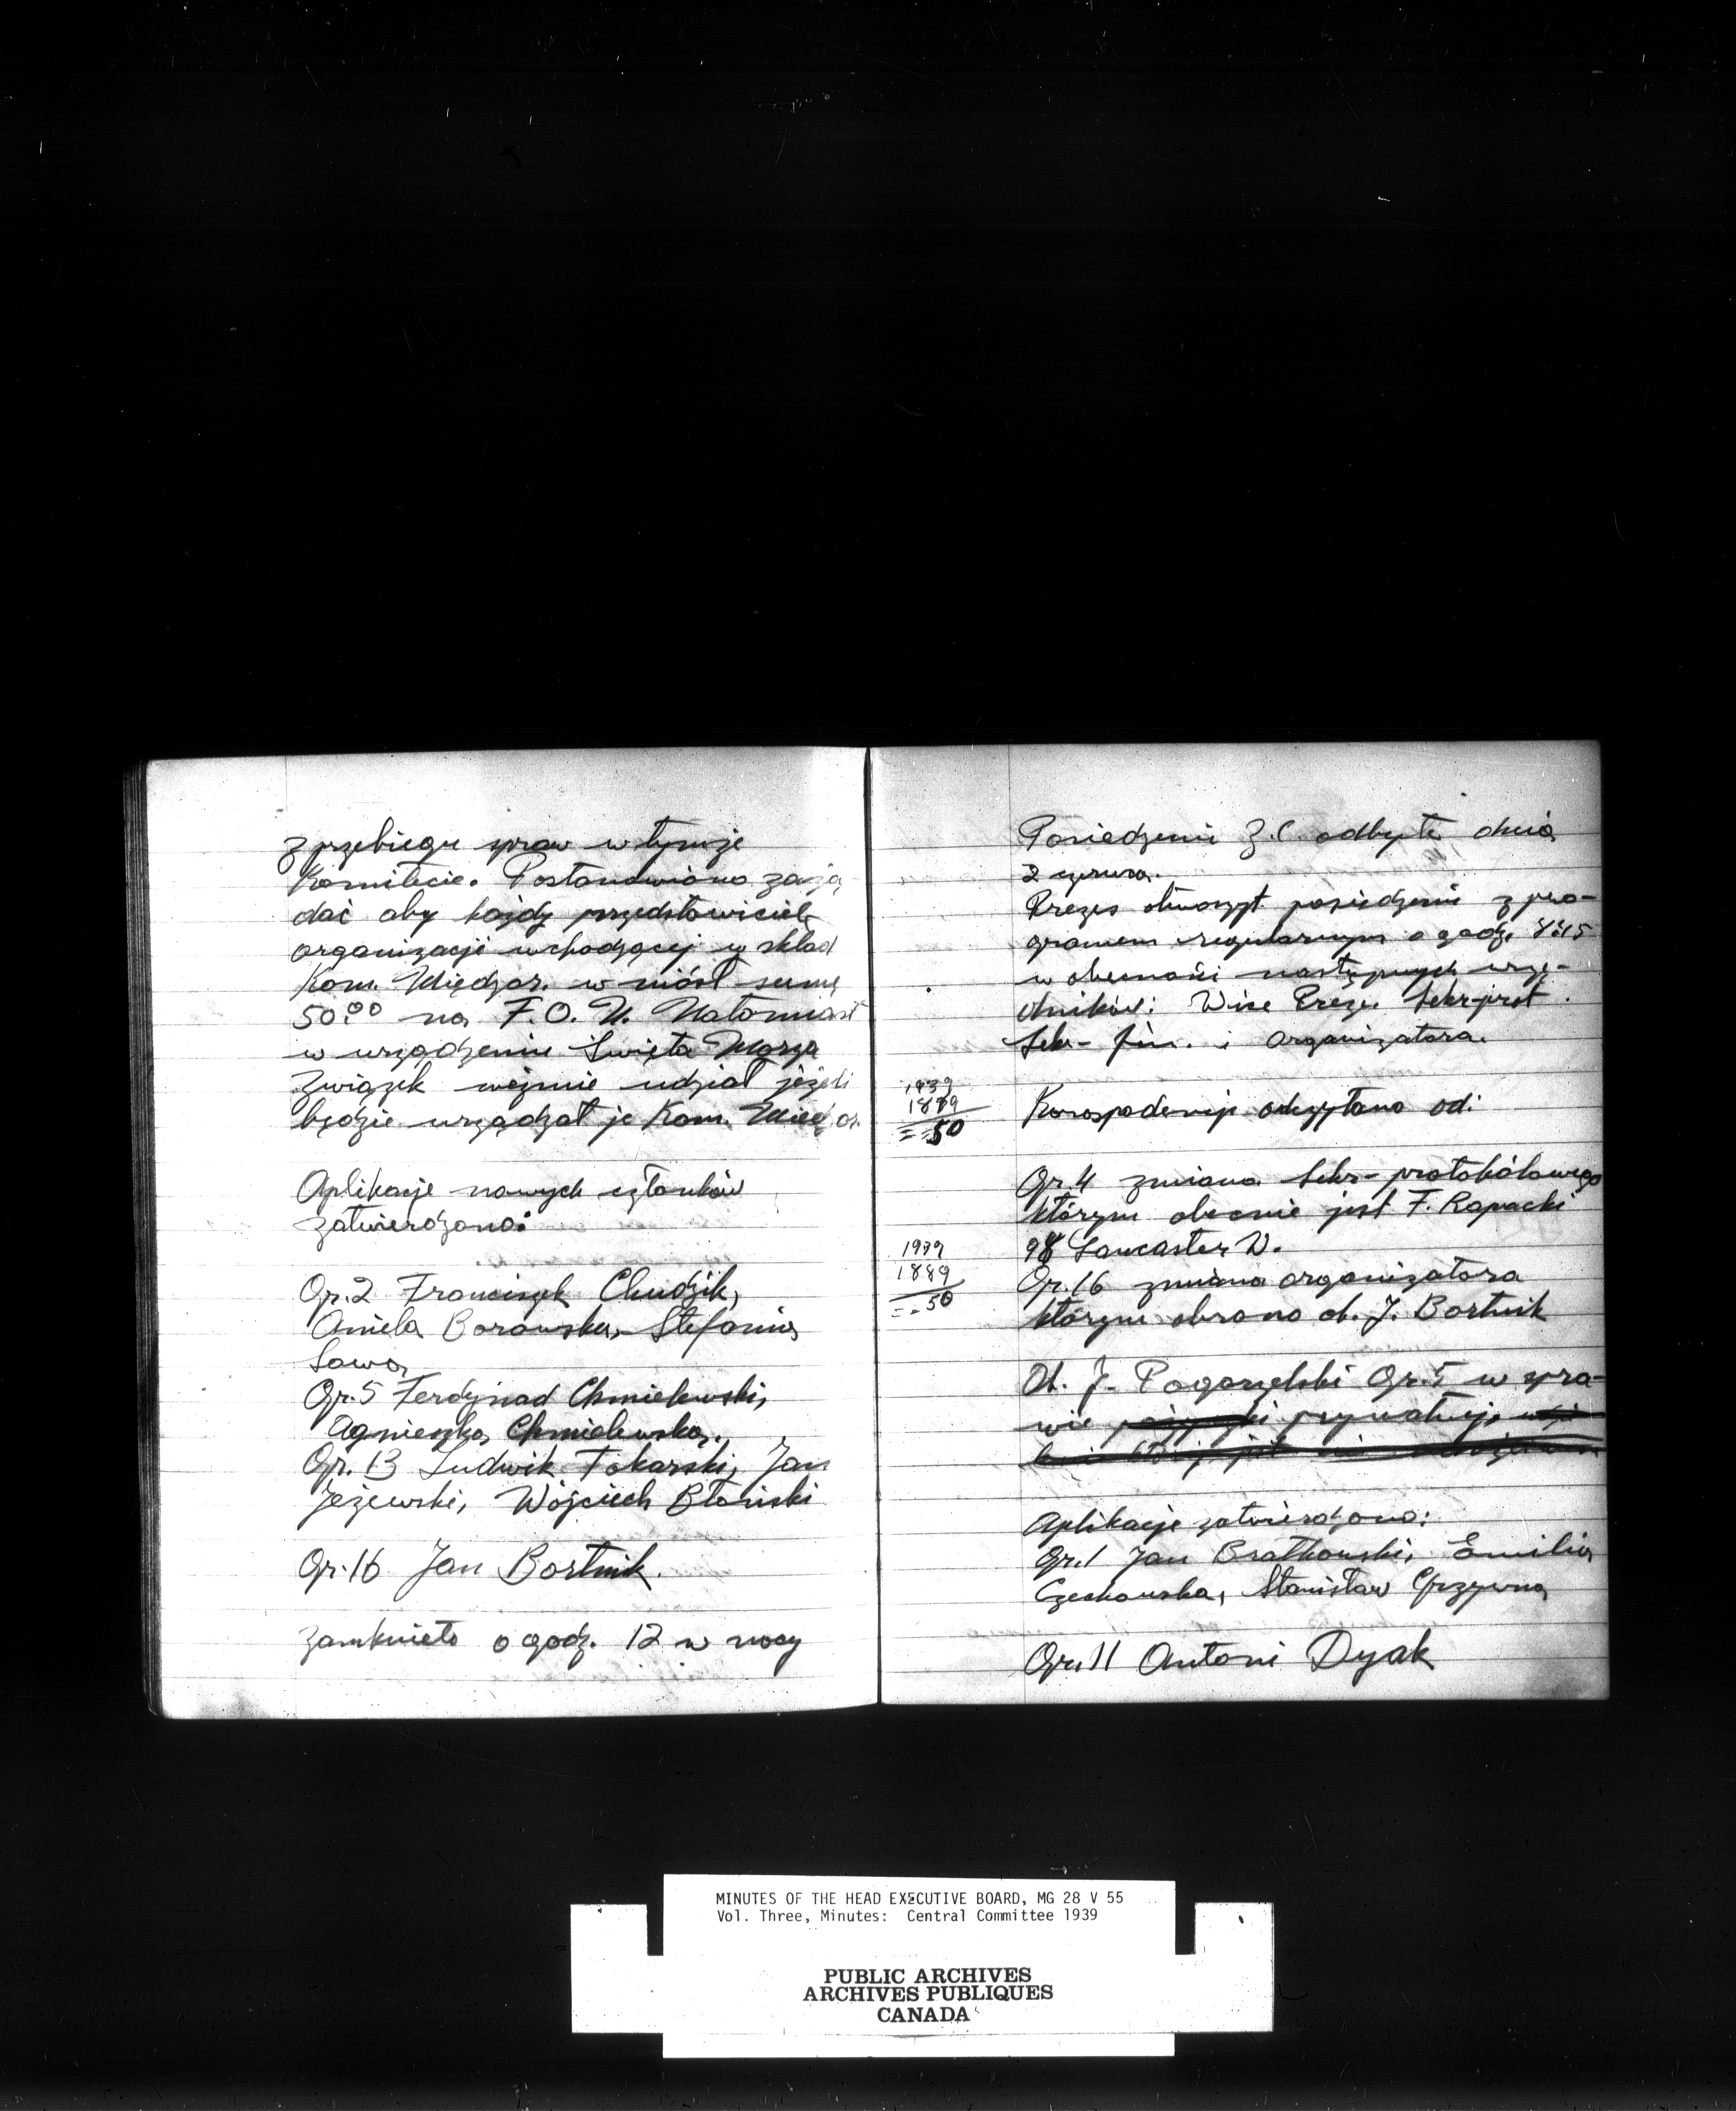 z przebiegu spraw w tymże
Komitecie. Postanowiono zażą
dać aby każdy przedstawiciel
organizacji wchodzącej w skład
Kom. Międzor. w niósł sumę
50.00 na F.O.N. Natomiast
w urządzeniu Święta Morza
Związek weźmie udział jeżeli
będzie urządzał je Kom. Międzor.
Aplikacje nowych członków
zatwierdzono:
Gr.2 Franciszek Chudzik,
Aniela Borowska, Stefania
Sawa
Gr.5 Ferdynad Chmielewski,
Agnieszka Chmielewska,
Gr. 13 Ludwik Tokarski, Jan
Jeżewski, Wójciech Błoński
Gr.16 Jan Bortnik.
Zamknięto o godz. 12 w nocy
Posiedzenie Z.C. odbyte dnia
2 czerwca.
Prezes otworzył posiedzenie z pro-
gramem regularnym o godz. 8:15
w obecności następnych urzę-
dników: Wise Preze. Sekr-prot.
Sekr- fin. i organizatora.
1939
1879
= 50
Korospodencje odczytano od:
Gr.4 zmiana Sekr- protokólowego
którym obecnie jest F. Rapacki
98 Lancaster W.
1939
1889
= 50
Gr.16 zmiana organizatora
którym obrano ob. J. Bortnik
Ob. J. Pogorzelski Gr.5 w spra-
wie prywatnej
Aplikacje zatwierdzono:
Gr.1 Jan Bratkowski, Emilia
Czechowska, Stanisław Grzywna
Gr.11 Antoni Dyak
MINUTES OF THE HEAD EXECUTIVE BOARD, MG 28 V 55
Vol. Three, Minutes: Central Committee 1939
PUBLIC ARCHIVES
ARCHIVES PUBLIQUES
CANADA